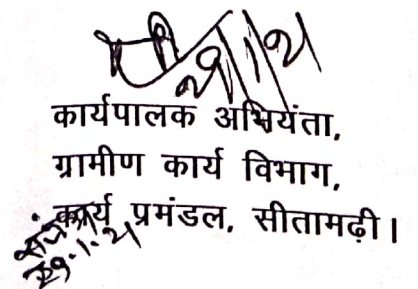 कार्यपालक अभियंता,
ग्रामीण कार्य विभाग,
कार्य प्रमंडल, सीतामढ़ी।
29.1.21